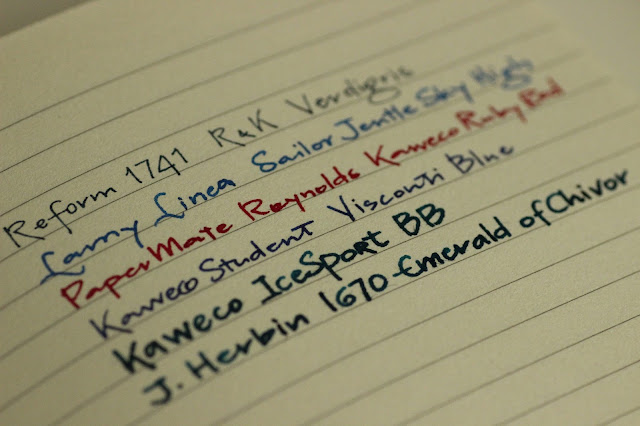 Reform 1741 R&K Verdigris
Lamy Linea Sailor Jentle Sky High
PaperMate Reynolds Kaweco Ruby Red
Kaweco Student Visconti Blue
Kaweco IceSport BB
J. Herbin 1670 Emerald of Chivor